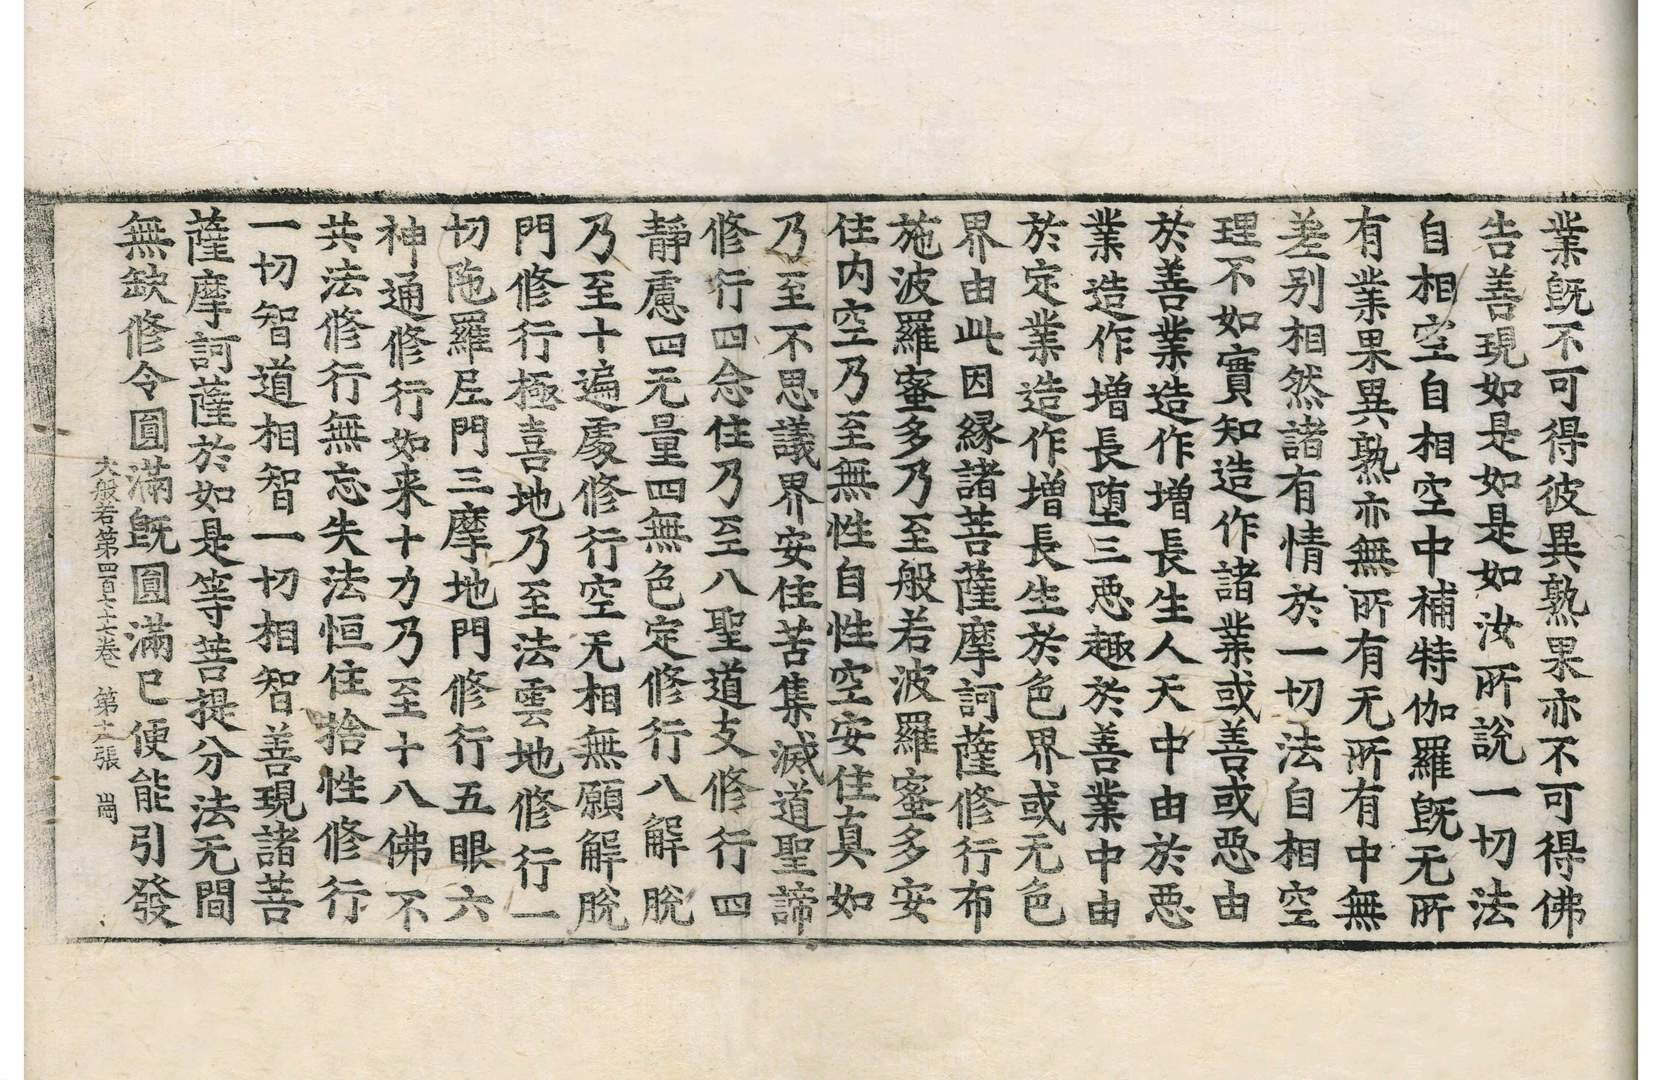 業旣不可得彼異熟果亦不可得佛
告善現如是如是如汝所說一切法
自相空自相空中補特伽羅旣无所
有業果異熟亦無所有无所有中無
差别相然諸有情於一切法自相空
理不如實知造作諸業或善或惡由
於善業造作增長生人天中由於惡
業造作增長墮三惡趣於善業中由
於定業造作增長生於色界或无色
界由此因緣諸菩薩摩訶薩修行布
施波羅蜜多乃至般若波羅蜜多安
住內空乃至無性自性空安住真如
乃至不思議界安住苦集滅道聖諦
修行四念住乃至八聖道支修行四
靜慮四无量四無色定修行八解脫
乃至十遍處修行空无相無願解脫
門修行極喜地乃至法雲地修行一
切陁羅尼門三摩地門修行五眼六
神通修行如来十力乃至十八佛不
共法修行無忘失法恒住捨性修行
一切智道相智一切相智善現諸菩
薩摩訶薩於如是等菩提分法无間
無缺修令圓滿旣圓滿已便能引發
大般若第四百七十二卷 第十六張 崗